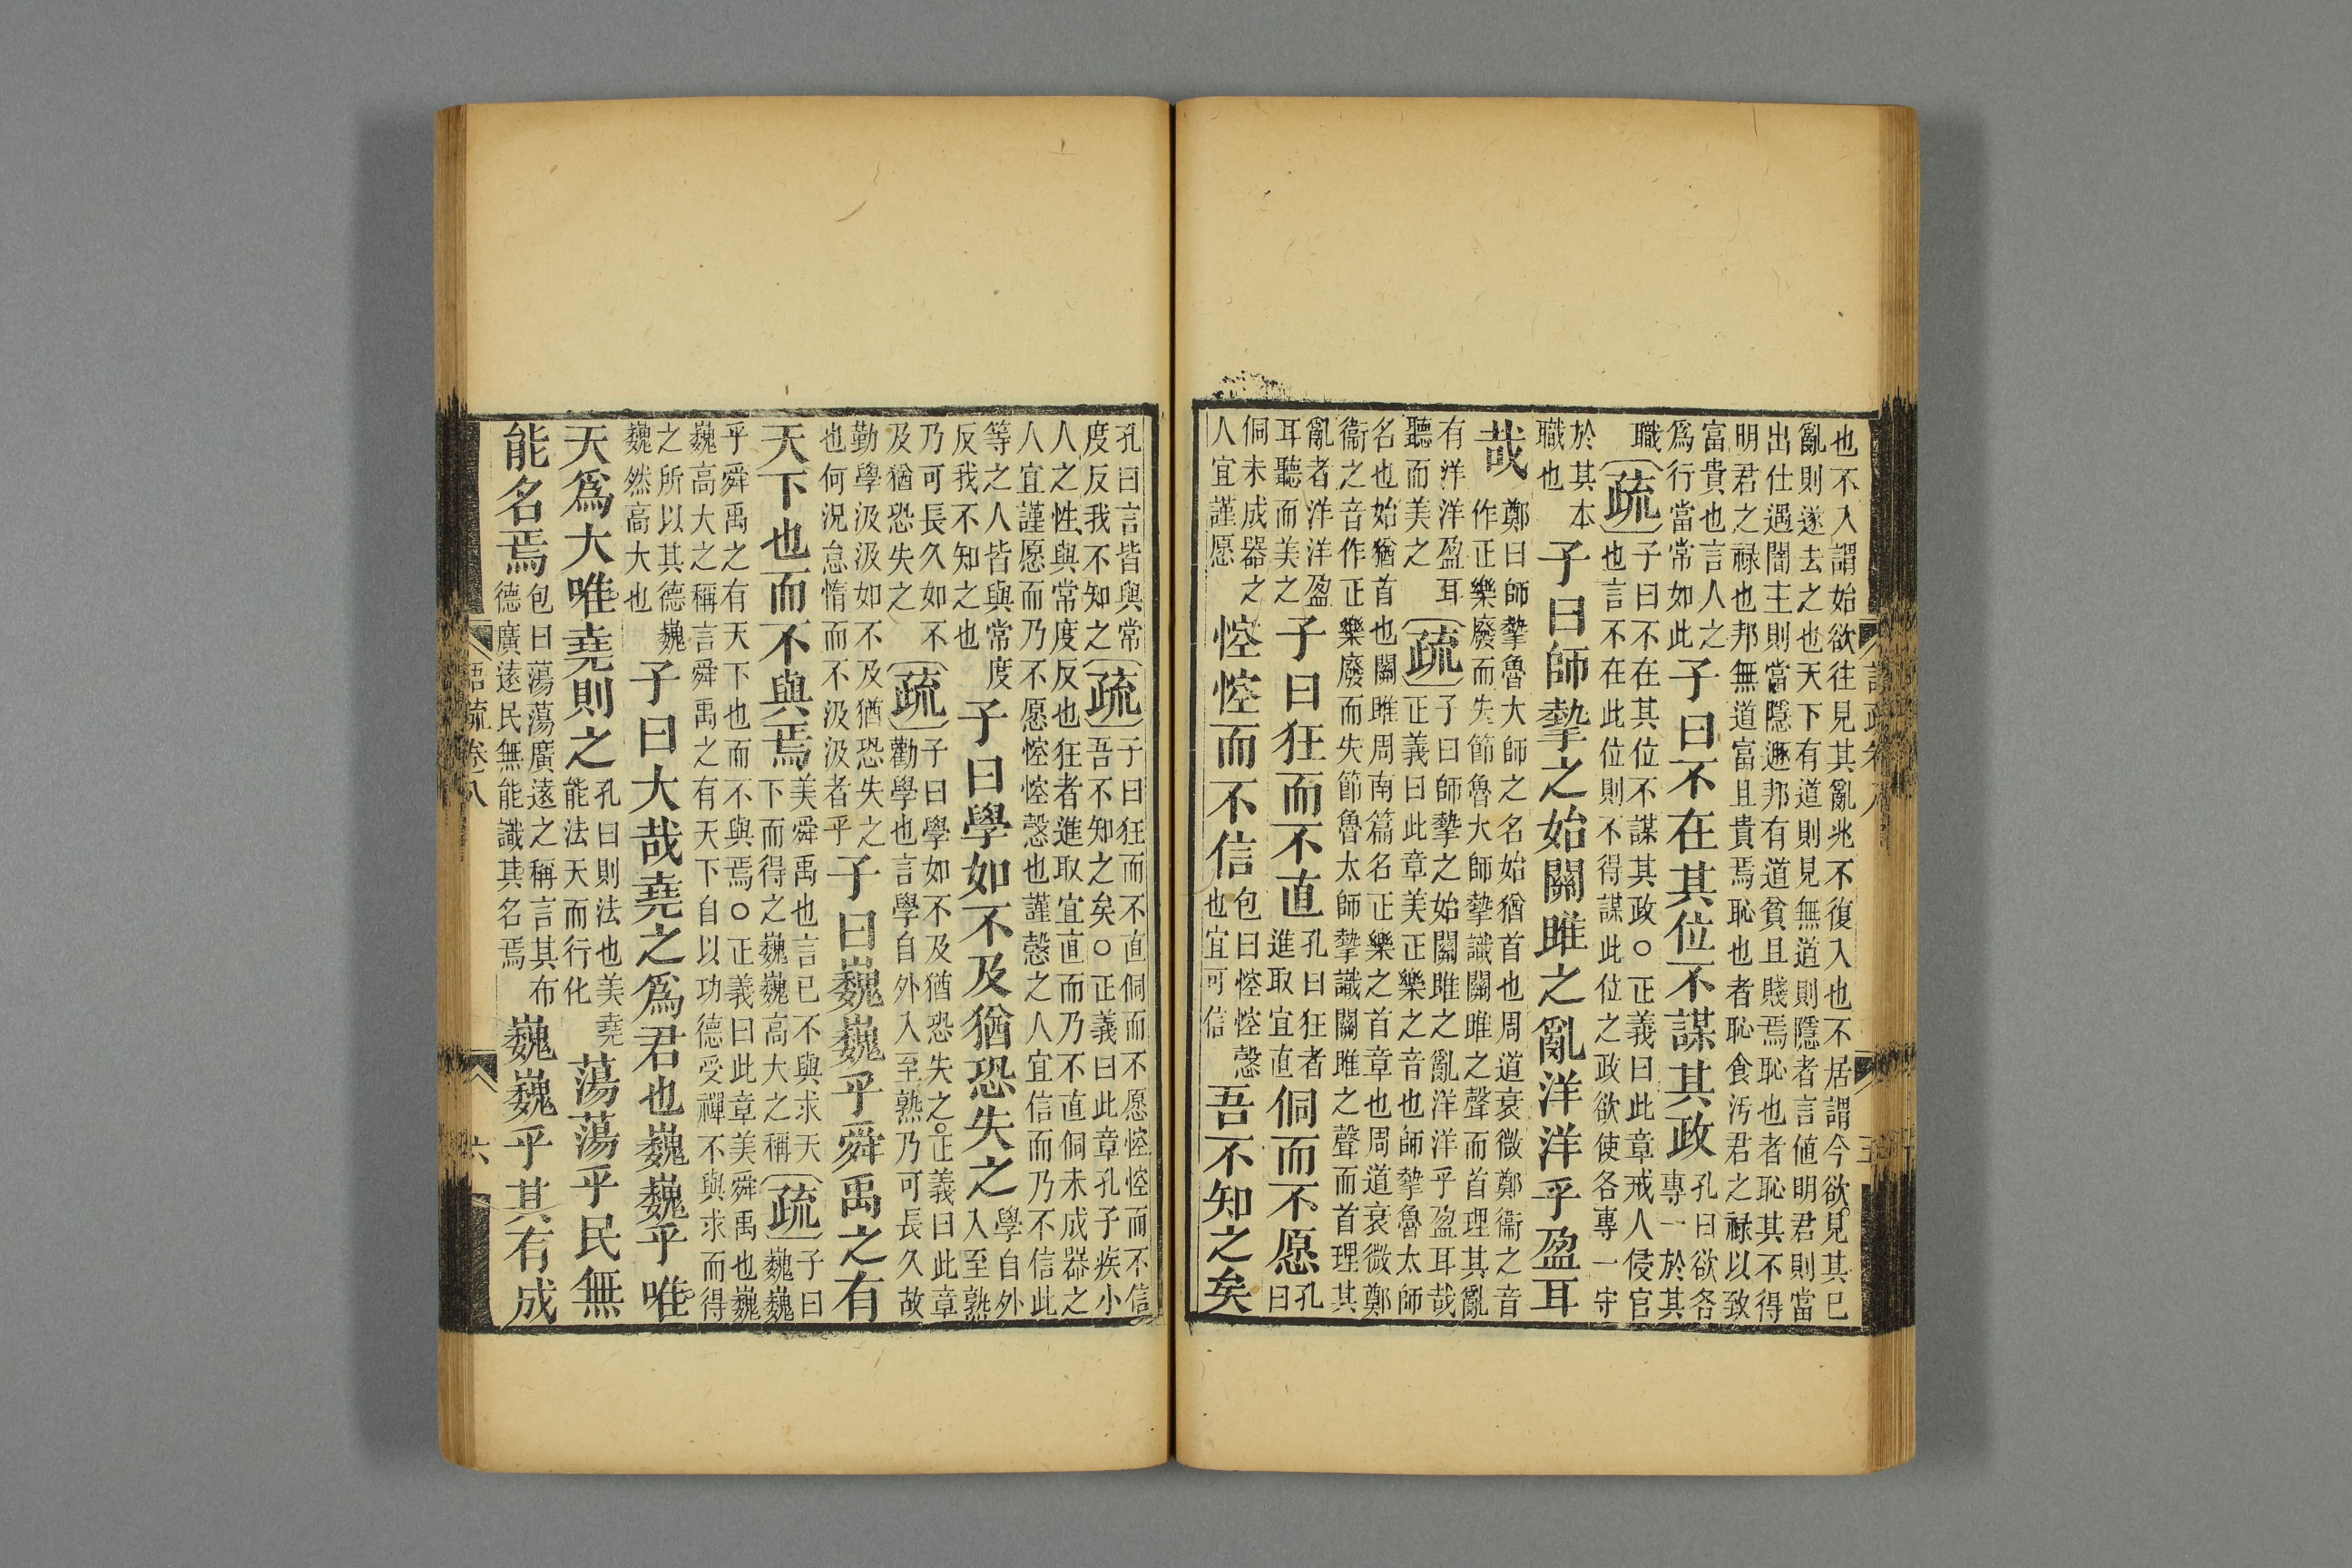 也不入謂始欲往見其亂兆不復入也不居謂今欲見其已
亂則遂去之也天下有道則見無道則隱者言値明君則當
出仕遇闇主則當隱遯邦有道貧且賤焉恥也者恥其不得
明君之禄也邦無道富且貴焉恥也者恥食汚君之禄以致
富貴也言人之
爲行當常如此
子曰不在其位不謀其政
孔曰欲各
專一於其
職
疏
子曰不在其位不謀其政○正義曰此章戒人侵官
也言不在此位則不得謀此位之政欲使各專一守
於其本
職也
子曰師摯之始關雎之亂洋洋乎盈耳
哉
鄭曰師摯魯大師之名始猶首也周道衰微鄭衞之音
作正樂廢而失節魯大師摯識關雎之聲而首理其亂
有洋洋盈耳
聽而美之
疏
子曰師摯之始關雎之亂洋洋乎盈耳哉
正義曰此章美正樂之音也師摯魯太師
名也始猶首也關雎周南篇名正樂之首章也周道衰微鄭
衞之音作正樂廢而失節魯太師摯識關雎之聲而首理其
亂者洋洋盈
耳聽而美之
子曰狂而不直
孔曰狂者
進取宜直
侗而不愿
孔
曰
侗未成器之
人宜謹愿
悾悾而不信
包曰悾悾慤
也宜可信
吾不知之矣
孔曰言皆與常
度反我不知之
疏
子曰狂而不直侗而不愿悾悾而不信
吾不知之矣○正義曰此章孔子疾小
人之性與常度反也狂者進取宜直而乃不直侗未成器之
人宜謹愿而乃不愿悾悾慤也謹慤之人宜信而乃不信此
等之人皆與常度
反我不知之也
子曰學如不及猶恐失之
學自外
入至熟
乃可長久如不
及猶恐失之
疏
子曰學如不及猶恐失之○正義曰此章
勸學也言學自外入至熟乃可長久故
勤學汲汲如不及猶恐失之
也何況怠惰而不汲汲者乎
子曰巍巍乎舜禹之有
天下也而不與焉
美舜禹也言已不與求天
下而得之巍巍高大之稱
疏
子曰
巍巍
乎舜禹之有天下也而不與焉○正義曰此章美舜禹也巍
巍高大之稱言舜禹之有天下自以功德受禪不與求而得
之所以其德巍
巍然高大也
子曰大哉堯之爲君也巍巍乎唯
天爲大唯堯則之
孔曰則法也美堯
能法天而行化
蕩蕩乎民無
能名焉
包曰蕩蕩廣遠之稱言其布
德廣遠民無能識其名焉
巍巍乎其有成
語疏卷八
六